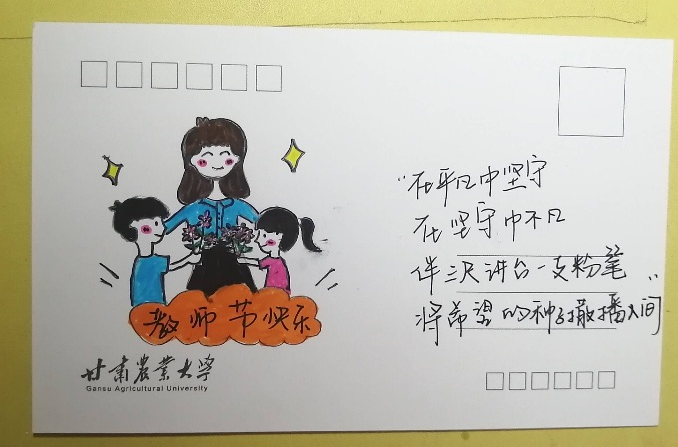 教师节快乐
甘肃农业大学
Gansu Agricultural University
"在平凡中坚守
在坚守中不凡
伴三尺讲台一支粉笔
将希望的种子撒播人间"